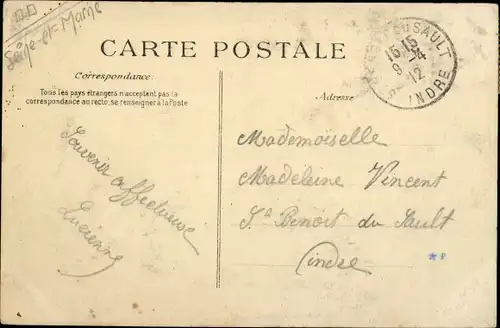 Seine-et-Marne
CARTE POSTALE
Correspondance:
Tous les pays étrangers n'acceptent pas la
correspondance au recto, se renseigner à la Poste
Adresse
SAULT
15 15
9 -4
12
INDRE
Souvenir affectueux
Lucienne
Mademoiselle
Madeleine Vincent
St Benoit du Sault
Indre